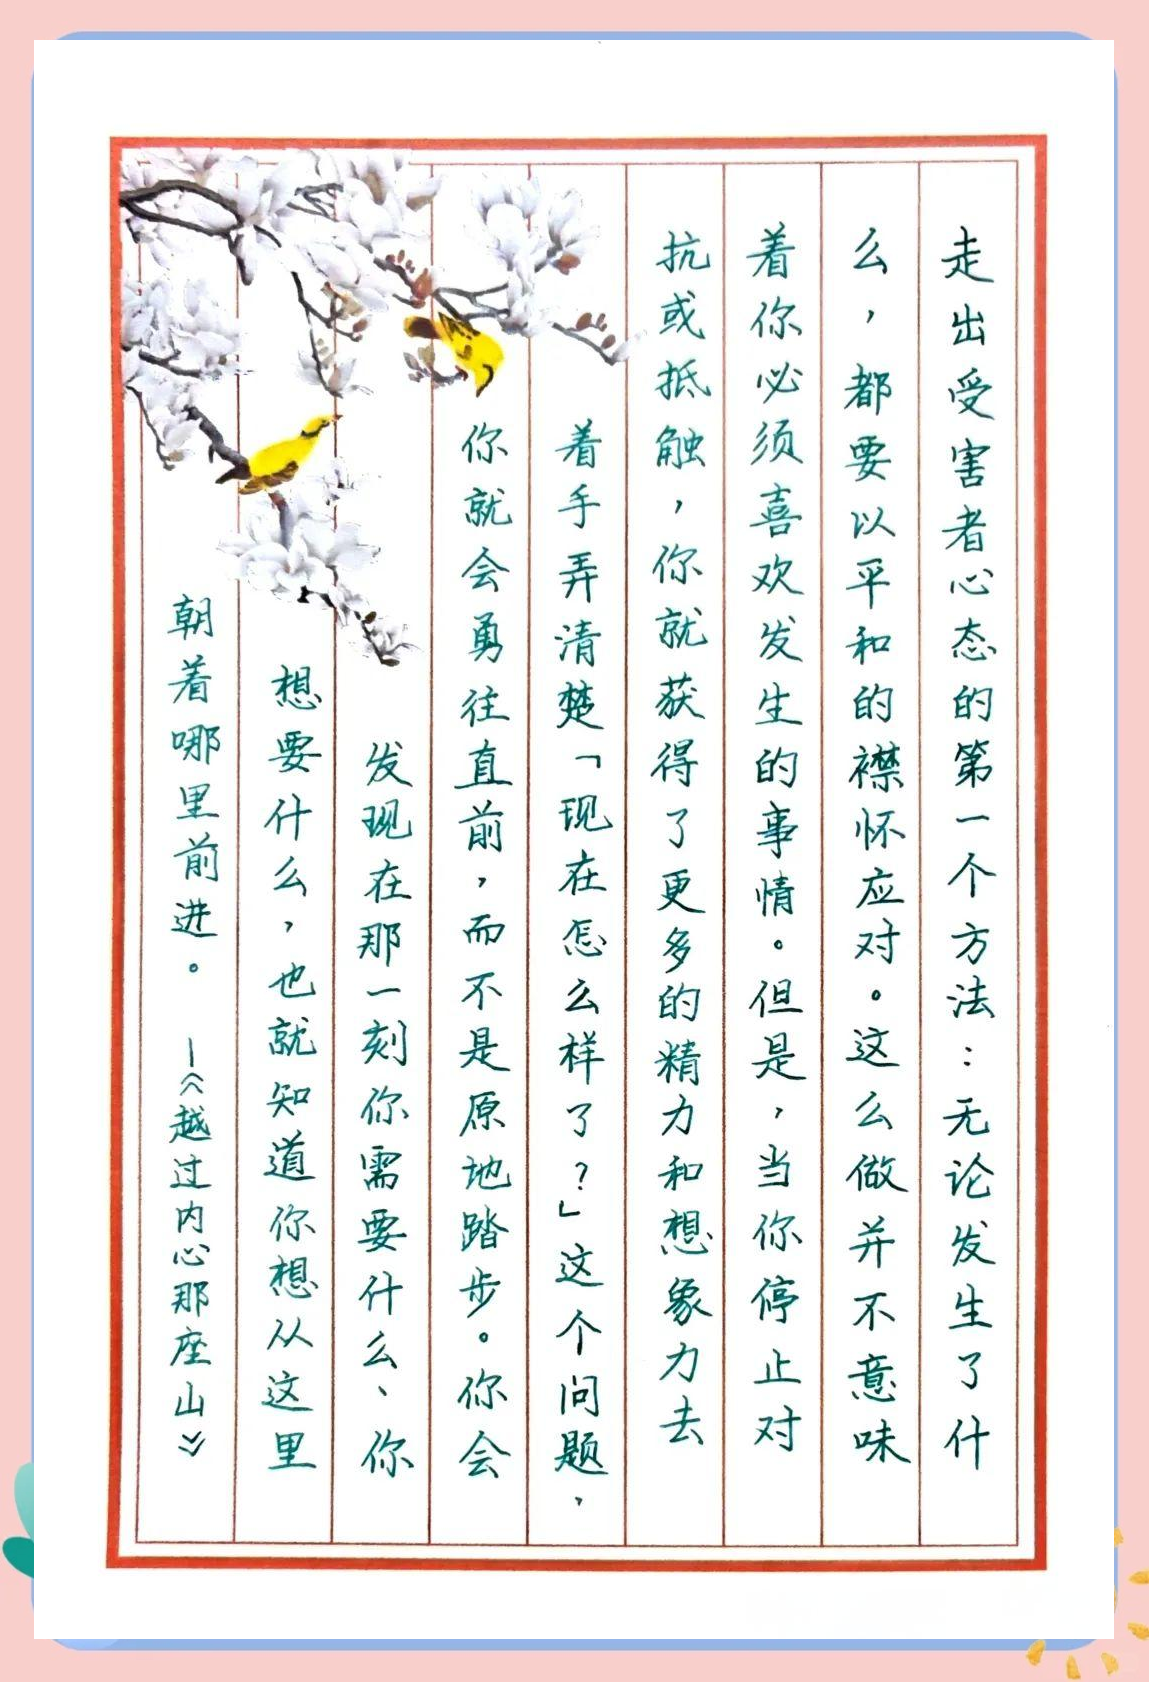 走出受害者心态的第一个方法：无论发生了什
么，都要以平和的襟怀应对。这么做并不意味
着你必须喜欢发生的事情。但是，当你停止对
抗或抵触，你就获得了更多的精力和想象力去
着手弄清楚「现在怎么样了？」这个问题，
你就会勇往直前，而不是原地踏步。你会
发现在那一刻你需要什么、你
想要什么，也就知道你想从这里
朝着哪里前进。 —《越过内心那座山》